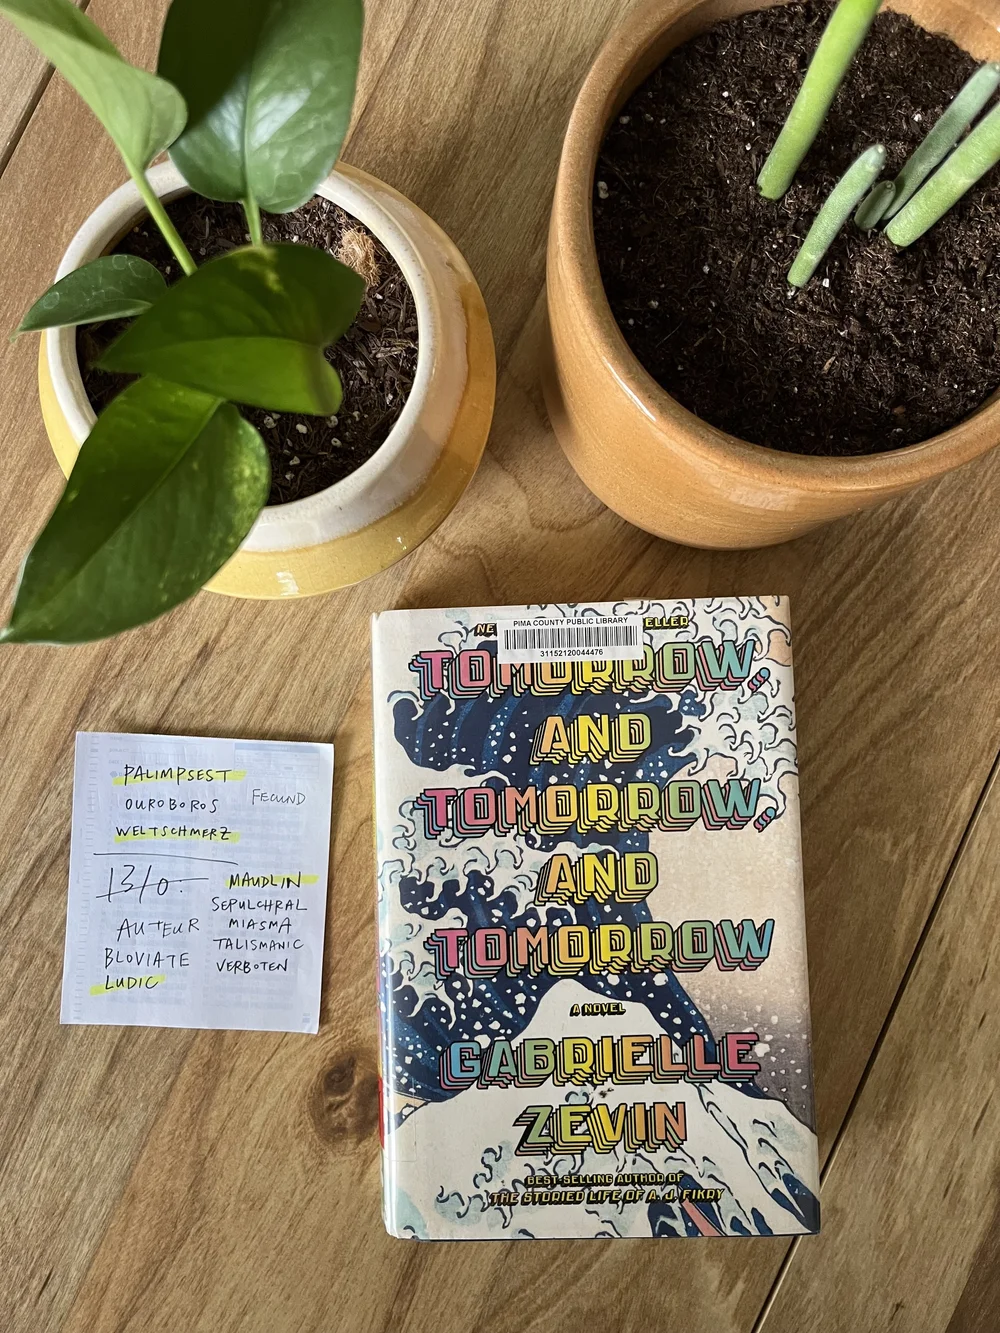 PALIMPSEST
OUROBOROS
FECUND
WELTSCHMERZ
AUTEUR
BLOVIATE
LUDIC
MAUDLIN
SEPULCHRAL
MIASMA
TALISMANIC
VERBOTEN
PIMA COUNTY PUBLIC LIBRARY
31152120044476
TOMORROW,
AND
TOMORROW,
AND
TOMORROW
A NOVEL
GABRIELLE
ZEVIN
BEST-SELLING AUTHOR OF
THE STORIED LIFE OF A. J. FIKRY